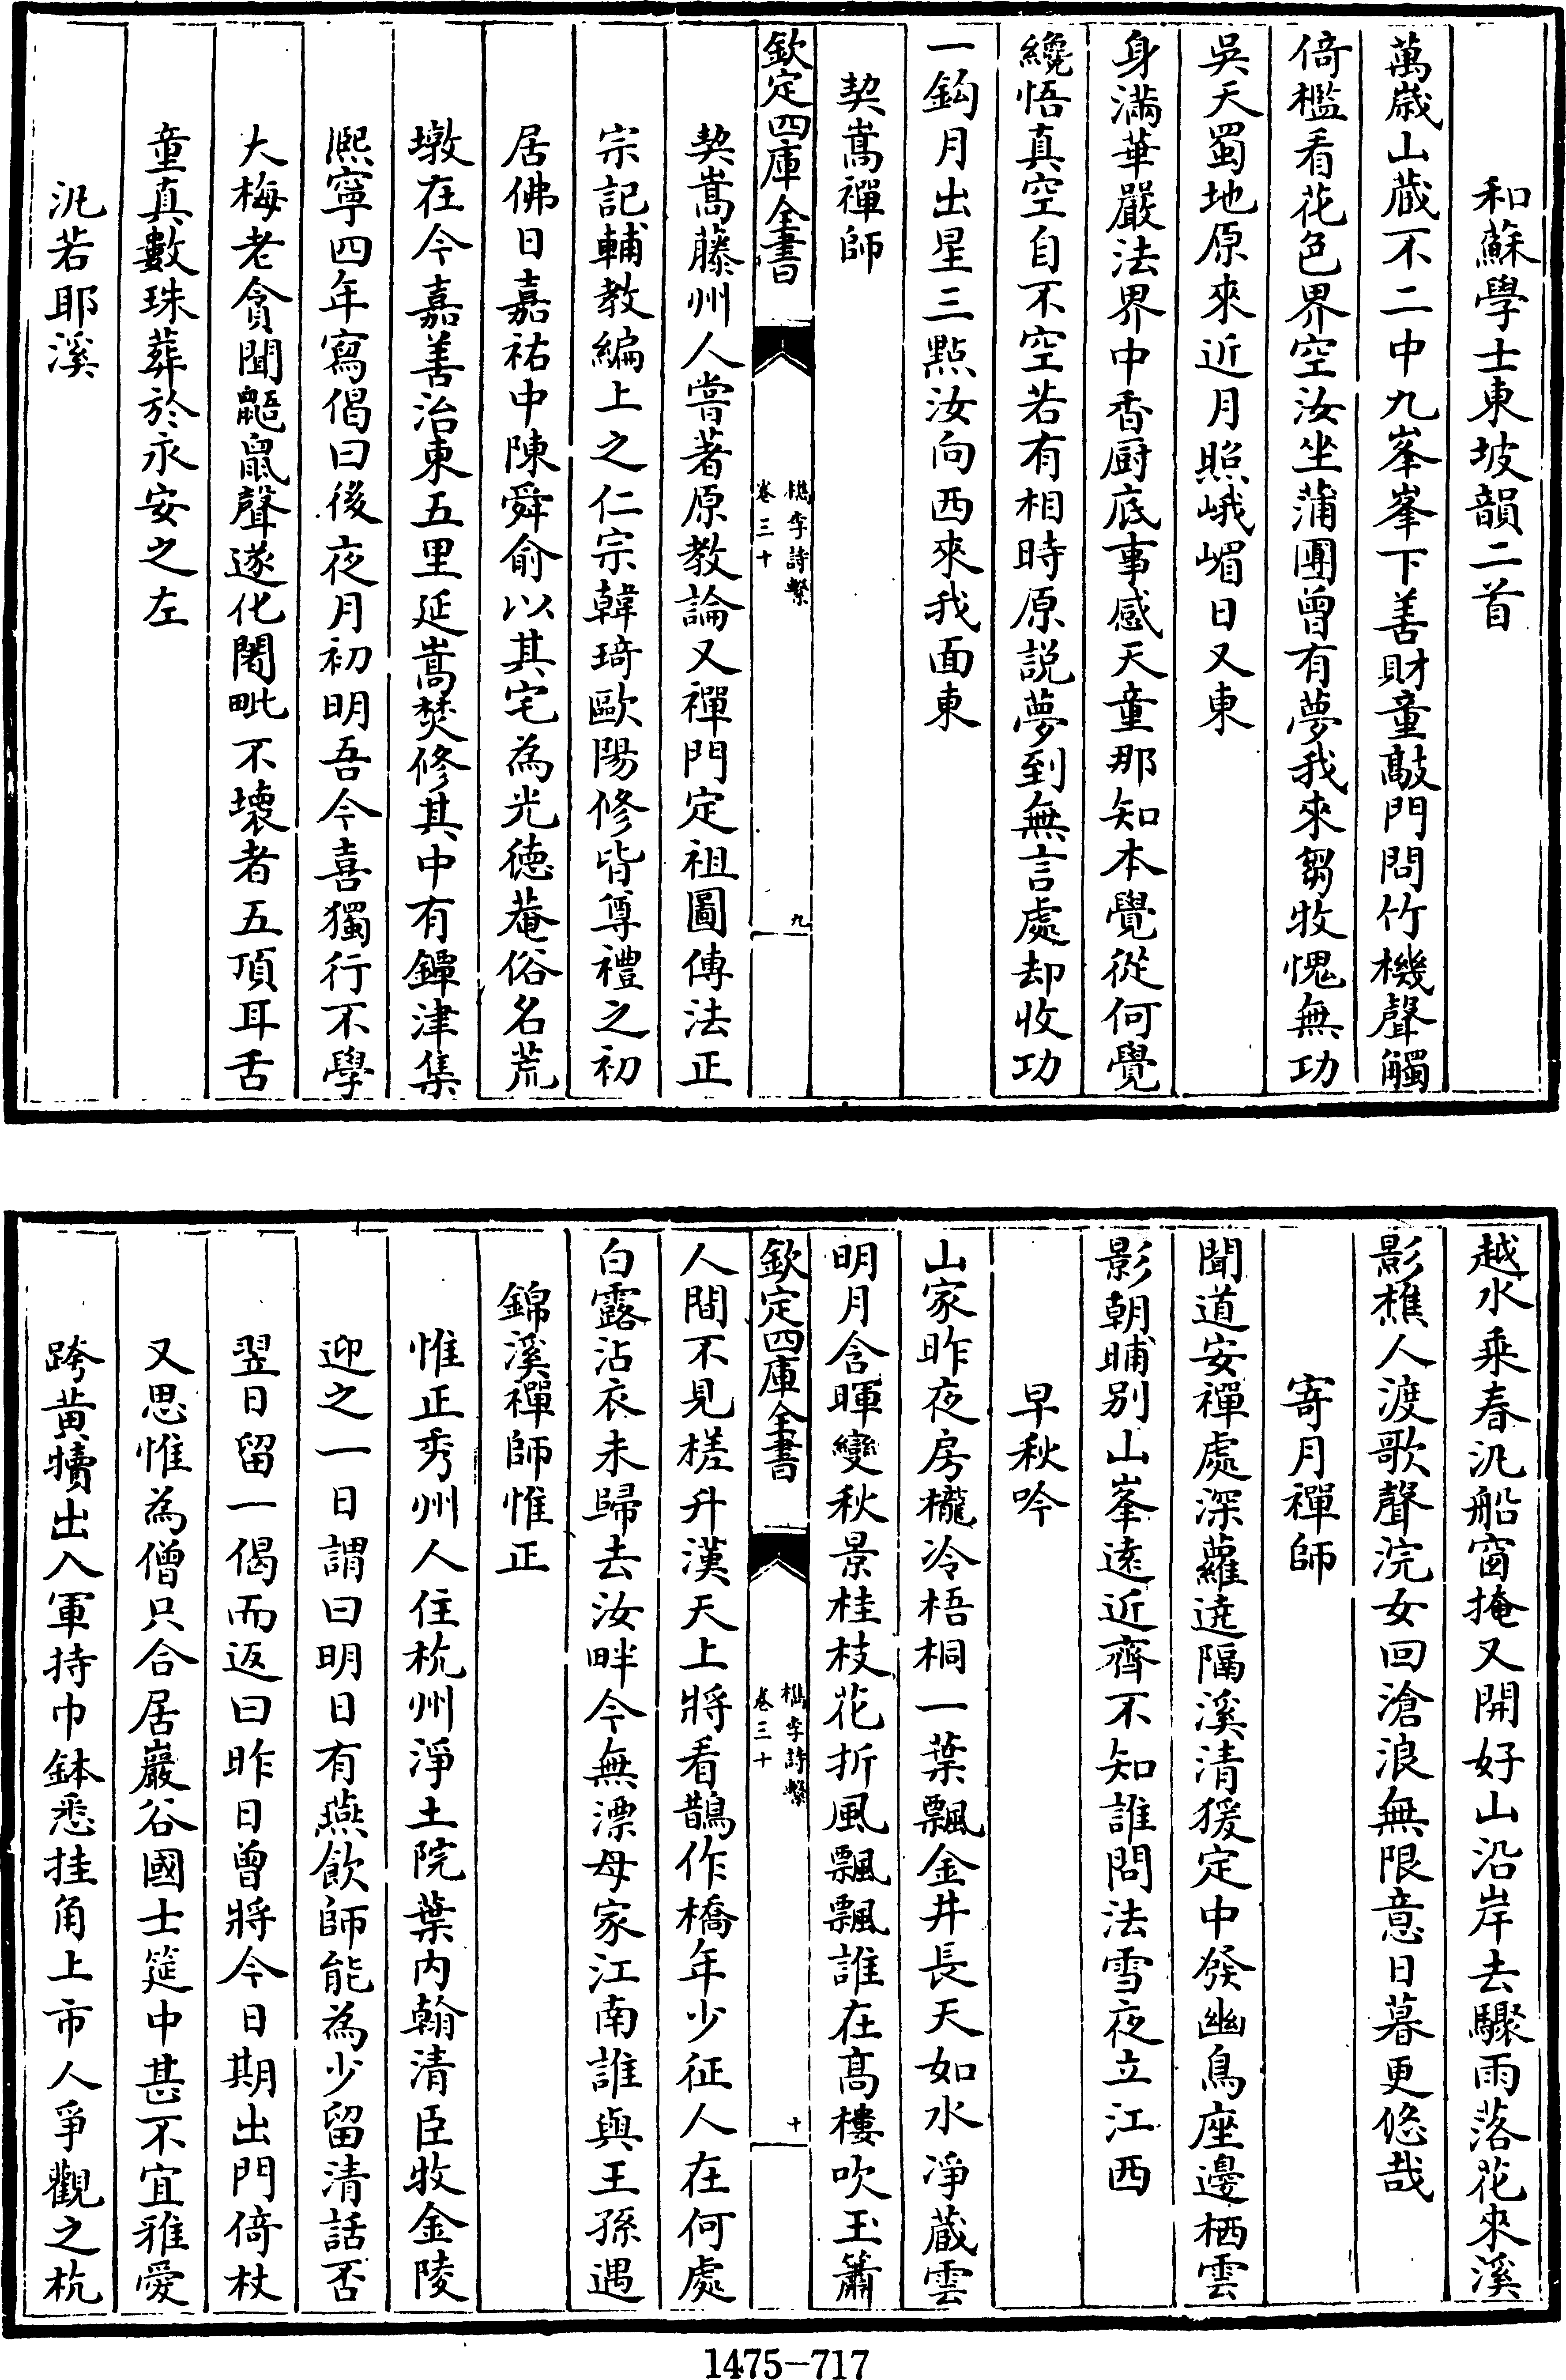 和蘇學士東坡韻二首
萬嵗山蔵不二中九峯峯下善財童敲門問竹機聲觸
倚檻看花色界空汝坐蒲團曾有夢我來芻牧愧無功
吳天蜀地原來近月照峨嵋日又東
身滿華嚴法界中香厨底事感天童那知本覺從何覺
纔悟真空自不空若有相時原説夢到無言處却收功
一鈎月出星三點汝向西來我面東
契嵩禪師
欽定四庫全書
檇李詩繫
卷三十
九
契嵩藤州人嘗著原教論又禪門定祖圖傳法正
宗記輔教編上之仁宗韓琦歐陽修皆尊禮之初
居佛日嘉祐中陳舜俞以其宅為光德菴俗名荒
墩在今嘉善治東五里延嵩焚修其中有鐔津集
熈寧四年寫偈曰後夜月初明吾今喜獨行不學
大梅老貪聞鼯鼠聲遂化闍毗不壊者五頂耳舌
童真數珠葬於永安之左
汎若耶溪
越水乘春汎船窗掩又開好山沿岸去驟雨落花來溪
影樵人渡歌聲浣女回滄浪無限意日暮更悠哉
寄月禪師
聞道安禪處深蘿遶隔溪清猨定中發幽鳥座邊栖雲
影朝晡别山峯遠近齊不知誰問法雪夜立江西
早秋吟
山家昨夜房櫳冷梧桐一葉飄金井長天如水凈蔵雲
明月含暉變秋景桂枝花折風飄飄誰在髙樓吹玉簫
欽定四庫全書
檇李詩繫
卷三十
十
人間不見槎升漢天上將看鵲作橋年少征人在何處
白露沾衣未歸去汝畔今無漂母家江南誰與王孫遇
錦溪禪師惟正
惟正秀州人住杭州淨土院葉内翰清臣牧金陵
迎之一日謂曰明日有燕飲師能為少留清話否
翌日留一偈而返曰昨日曾將今日期出門倚杖
又思惟為僧只合居巖谷國士筵中甚不宜雅愛
跨黃犢出入軍持巾鉢悉挂角上市人爭觀之杭
1475-717